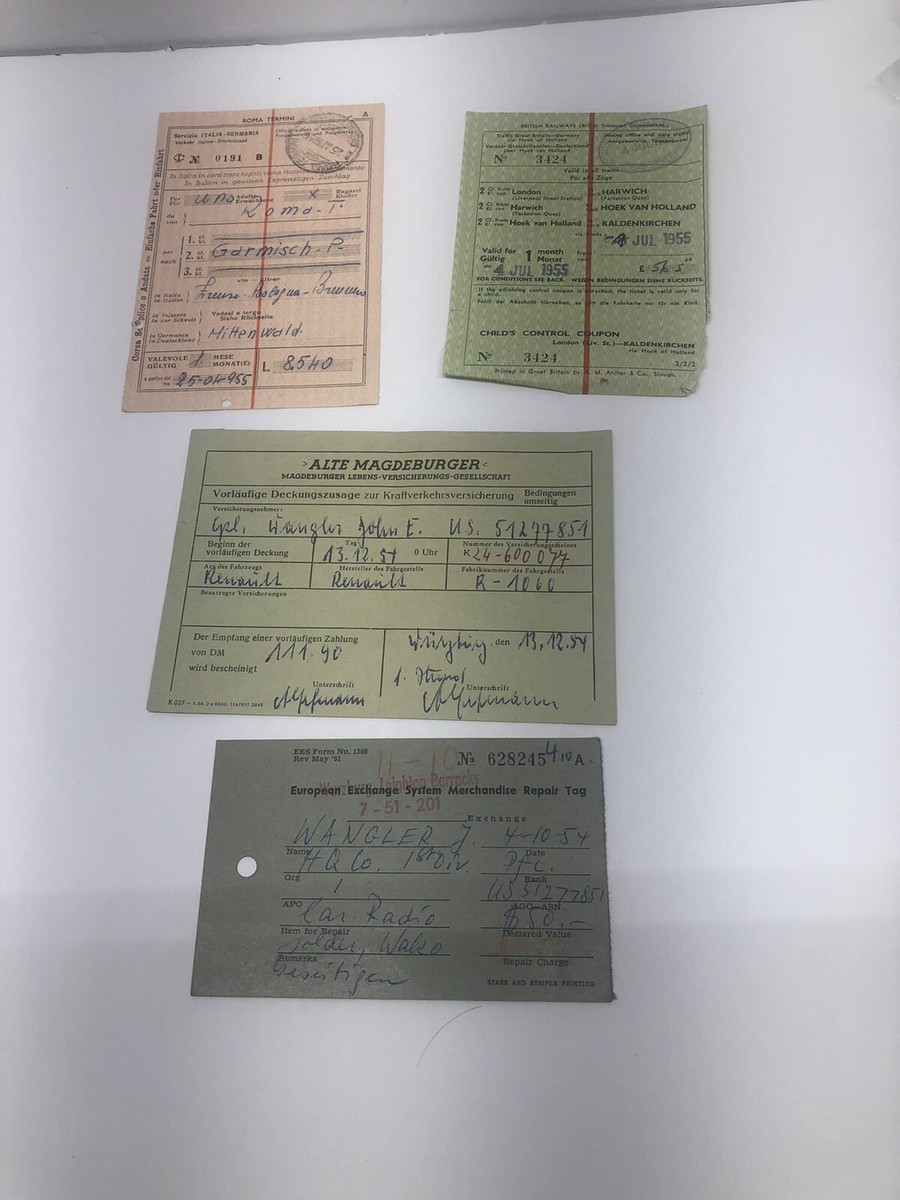 ROMA TERMINI
A
Servizio ITALIA-GERMANIA
Verkehr Italien-Deutschland
№ 0191 B
In Italien in gewissen Expresszügen Zuschlag
Per
Für
uno
Adulti
Erwachsene
x
Ragazzi
Kinder
da
von
Roma-T
1. cl.
per
nach
2. cl.
Garmisch-P-
3. cl.
via - über
in Italia
in Italien
Firenze-Bologna-Brennero
in Svizzera
in der Schweiz
Vedasi a tergo
Siehe Rückseite
in Germania
in Deutschland
Mittenwald
VALEVOLE
GÜLTIG
1
MESE
MONAT(E)
L. 8540
a partire dal
25-04-955
Corsa semplice o Andata = Einfache Fahrt oder Hinfahrt
BRITISH RAILWAYS (British Transport Commission)
Traffic Great Britain-Germany
via Hook of Holland
Verkehr Grossbritannien-Deutschland
über Hoek van Holland
Issuing office and date stamp
№ 3424
Valid in all trains
Für alle Züge
2 Cl. from London HARWICH
(Liverpool Street Station) (Parkeston Quay)
2 Cl. from Harwich HOEK VAN HOLLAND
(Parkeston Quay)
2 Cl. from Hoek van Holland KALDENKIRCHEN
Valid for
Gültig
1
month
Monat
from
-4 JUL 1955
-4 JUL 1955
£ 5/6 5
FOR CONDITIONS SEE BACK. WEGEN BEDINGUNGEN SIEHE RÜCKSEITE.
If the adjoining control coupon is detached, the ticket is valid only for
a child.
Fehlt der Abschnitt hierneben, so gilt die Fahrkarte nur für ein Kind.
CHILD'S CONTROL COUPON
London (Liv. St.)—KALDENKIRCHEN
via Hook of Holland
№ 3424
2/2/2
Printed in Great Britain by A. M. Archer & Co., Slough.
>ALTE MAGDEBURGER<
MAGDEBURGER LEBENS-VERSICHERUNGS-GESELLSCHAFT
Vorläufige Deckungszusage zur Kraftverkehrsversicherung
Bedingungen
umseitig
Versicherungsnehmer:
Cpl. Wangler John E. US. 51277851
Beginn der
vorläufigen Deckung
Tag
13.12.54 0 Uhr
Nummer des Versicherungsscheines
K 24-600077
Art des Fahrzeugs
Renault
Hersteller des Fahrgestells
Renault
Fabriknummer des Fahrgestells
R-1060
Beantragte Versicherungen
Der Empfang einer vorläufigen Zahlung
von DM 111.90
wird bescheinigt
Würzburg, den 13.12.54
Unterschrift
Unterschrift
EES Form No. 1308
Rev May '51
№ 628245
A
Wurzburg Leighton Barracks
European Exchange System Merchandise Repair Tag
7-51-201
Exchange
WANGLER J. 4-10-54
Name Date
HQ Co. 1st Div. Pfc.
Org Rank
1 US51277851
APO AGO-ASN
Car Radio $50,-
Item for Repair Declared Value
solder,
Remarks Repair Charge
beseitigen
STARS AND STRIPES PRINTING